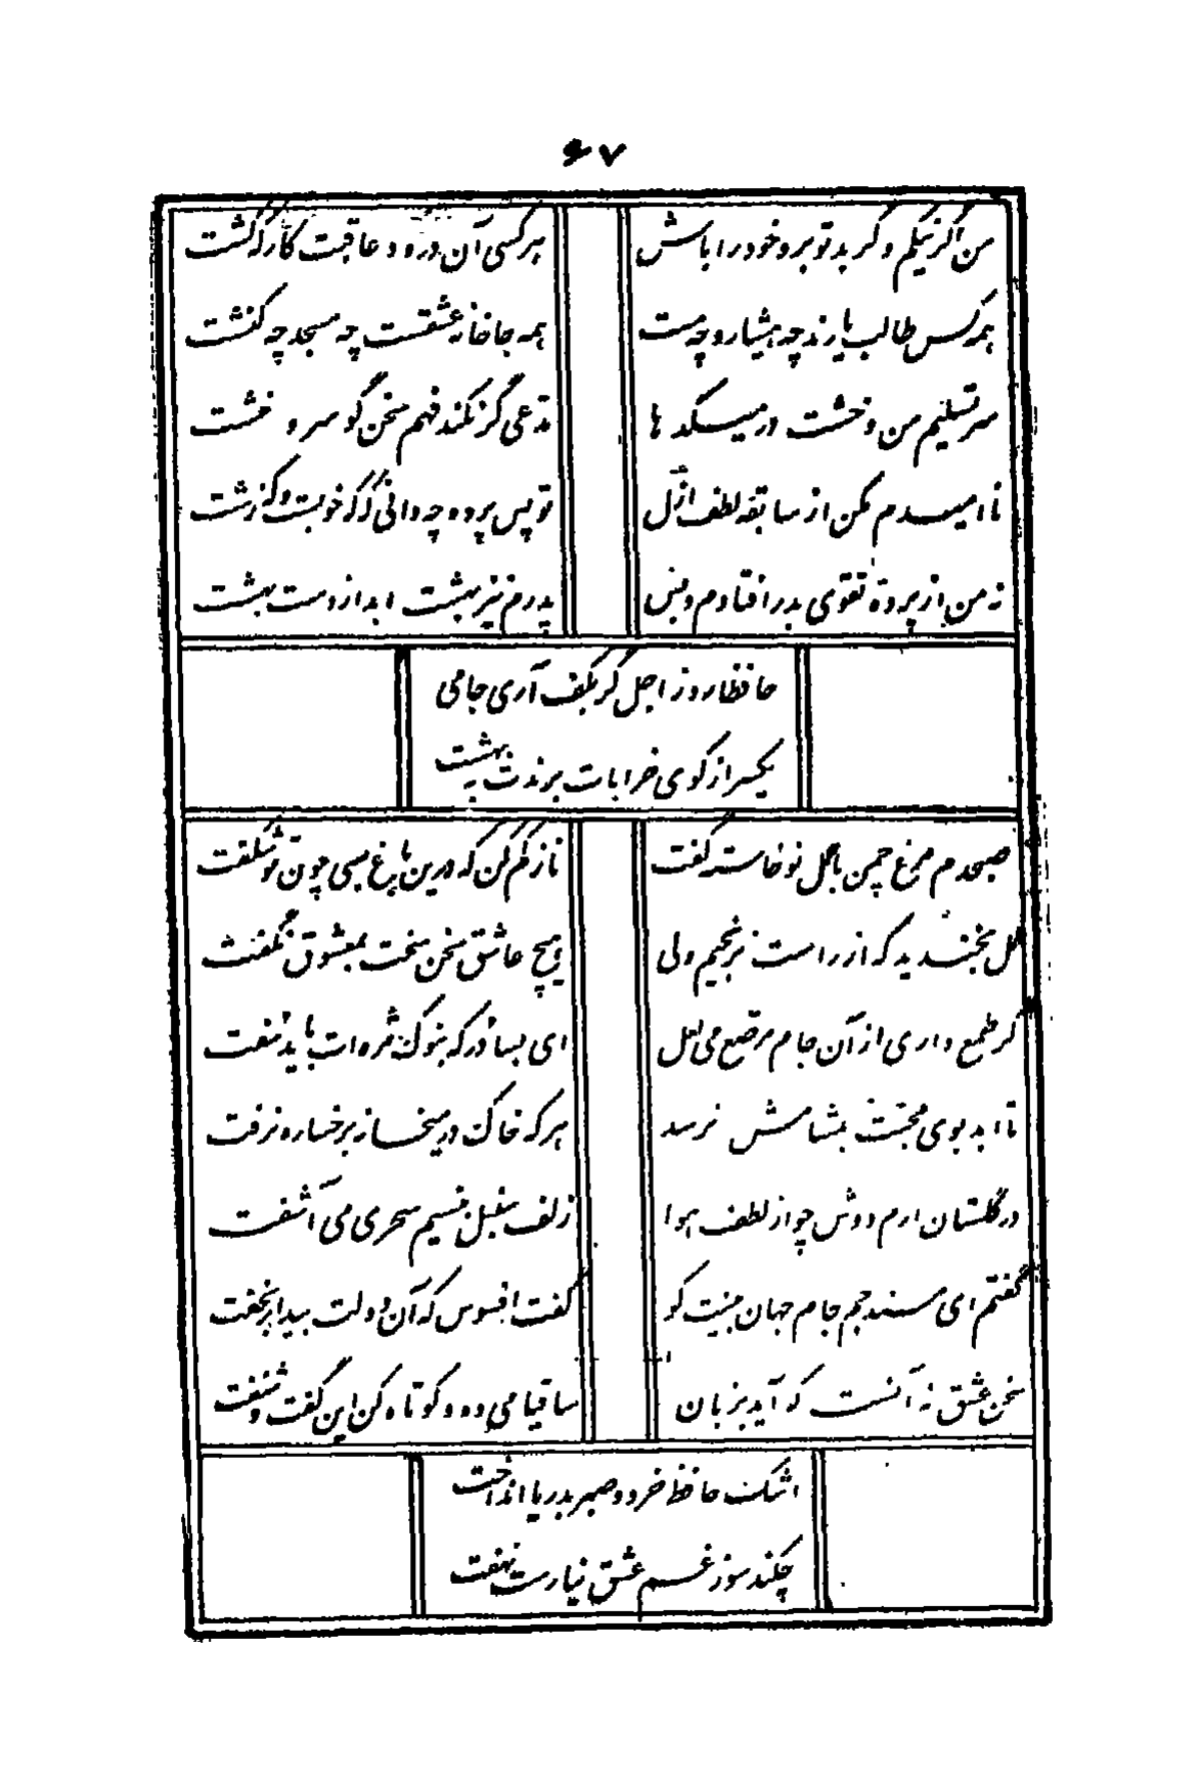 ۶۷
من اگر نیکم و گر بد تو برو خود را باش هر کسی آن درود عاقبت کار که کشت
همه کس طالب یارند چه هشیار و چه مست همه جا خانه عشقست چه مسجد چه کنشت
سر تسلیم من و خشت در میکدها مدعی گر نکند فهم سخن گو سر و خشت
نا امیدم مکن از سابقه لطف ازل تو پس پرده چه دانی که که خوبست و که زشت
نه من از پرده تقوی بدر افتادم و بس پدرم نیز بهشت ابد از دست بهشت
حافظا روز اجل گر بکف آری جامی
یکسر از کوی خرابات برندت به بهشت
صبحدم مرغ چمن با گل نو خاسته گفت ناز کم کن که درین باغ بسی چون تو شکفت
گل بخندید که از راست نرنجیم ولی هیچ عاشق سخن سخت بمعشوق نگفت
گر طمع داری از آن جام مرصع می لعل ای بسا در که بنوک مژه ات باید سفت
تا ابد بوی محبت بمشامش نرسد هر که خاک در میخانه برخساره نرفت
در گلستان ارم دوش چو از لطف هوا زلف سنبل بنسیم سحری می آشفت
گفتم ای مسند جم جام جهان بینت کو گفت افسوس که آن دولت بیدار بخفت
سخن عشق نه آنست که آید بزبان ساقیا می ده و کوتاه کن این گفت و شنفت
اشک حافظ خرد و صبر بدریا انداخت
چکند سوز غم عشق نیارست نهفت